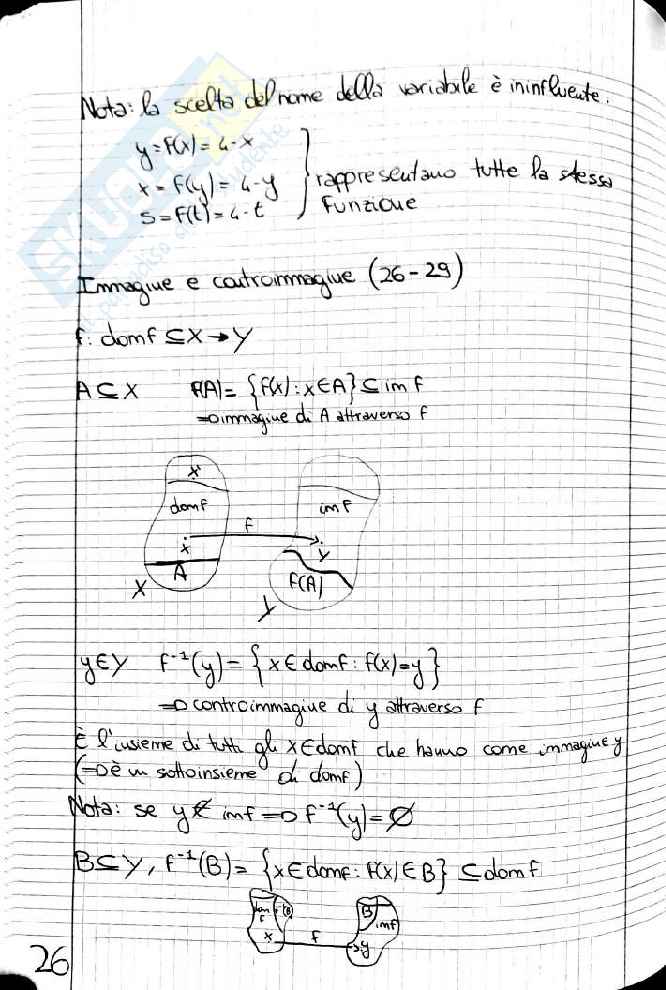 Nota: la scelta del nome della variabile è ininfluente.
y = f(x) = 4·x
x = f(y) = 4·y
s = f(t) = 4·t
rappresentano tutte la stessa
funzione
Immagine e controimmagine (26-29)
f: domf ⊆ X → Y
A ⊆ X f(A) = {f(x) : x ∈ A} ⊆ im f
⇒ immagine di A attraverso f
x
domf
im f
f
x
y
A
f(A)
X
Y
y ∈ Y f⁻¹(y) = {x ∈ domf : f(x) = y}
⇒ controimmagine di y attraverso f
È l'insieme di tutti gli x ∈ domf che hanno come immagine y
(⇒ è un sottoinsieme di domf)
Nota: se y ∉ imf ⇒ f⁻¹(y) = ∅
B ⊆ Y, f⁻¹(B) = {x ∈ domf : f(x) ∈ B} ⊆ domf
dom
f
B
imf
x
f
y
26
SKUOLA.NET